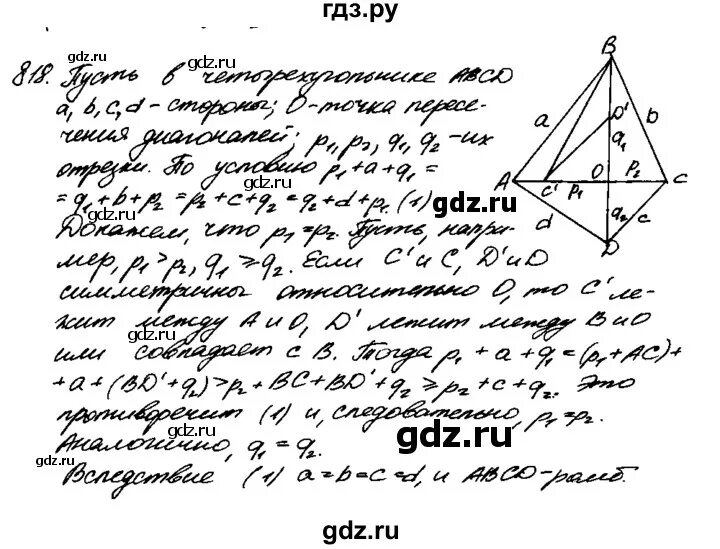 гдз.ру
gdz.ru
gdz.ru
818. Пусть в четырехугольнике ABCD
a, b, c, d – стороны; O – точка пересе-
чения диагоналей; p₁, p₂, q₁, q₂ – их
отрезки. По условию p₁ + a + q₁ =
= q₁ + b + p₂ = p₂ + c + q₂ = q₂ + d + p₁. (1)
Докажем, что p₁ = p₂. Пусть, напри-
мер, p₁ > p₂, q₁ ⩾ q₂. Если C' и C, D' и D
симметричны относительно O, то C' ле-
жит между A и O, D' лежит между B и O
или совпадает с B. Тогда p₁ + a + q₁ = (p₁ + AC) +
+ a + (BD' + q₂) > p₂ + BC + BD' + q₂ ⩾ p₂ + c + q₂. Это
противоречит (1) и, следовательно, p₁ = p₂.
Аналогично, q₁ = q₂.
Вследствие (1) a = b = c = d, и ABCD – ромб.
B
D'
a
b
q₁
A
C'
p₁
O
p₂
C
d
q₂
c
D
gdz.ru
gdz.ru
gdz.ru
gdz.ru
gdz.ru
gdz.ru
gdz.ru
gdz.ru